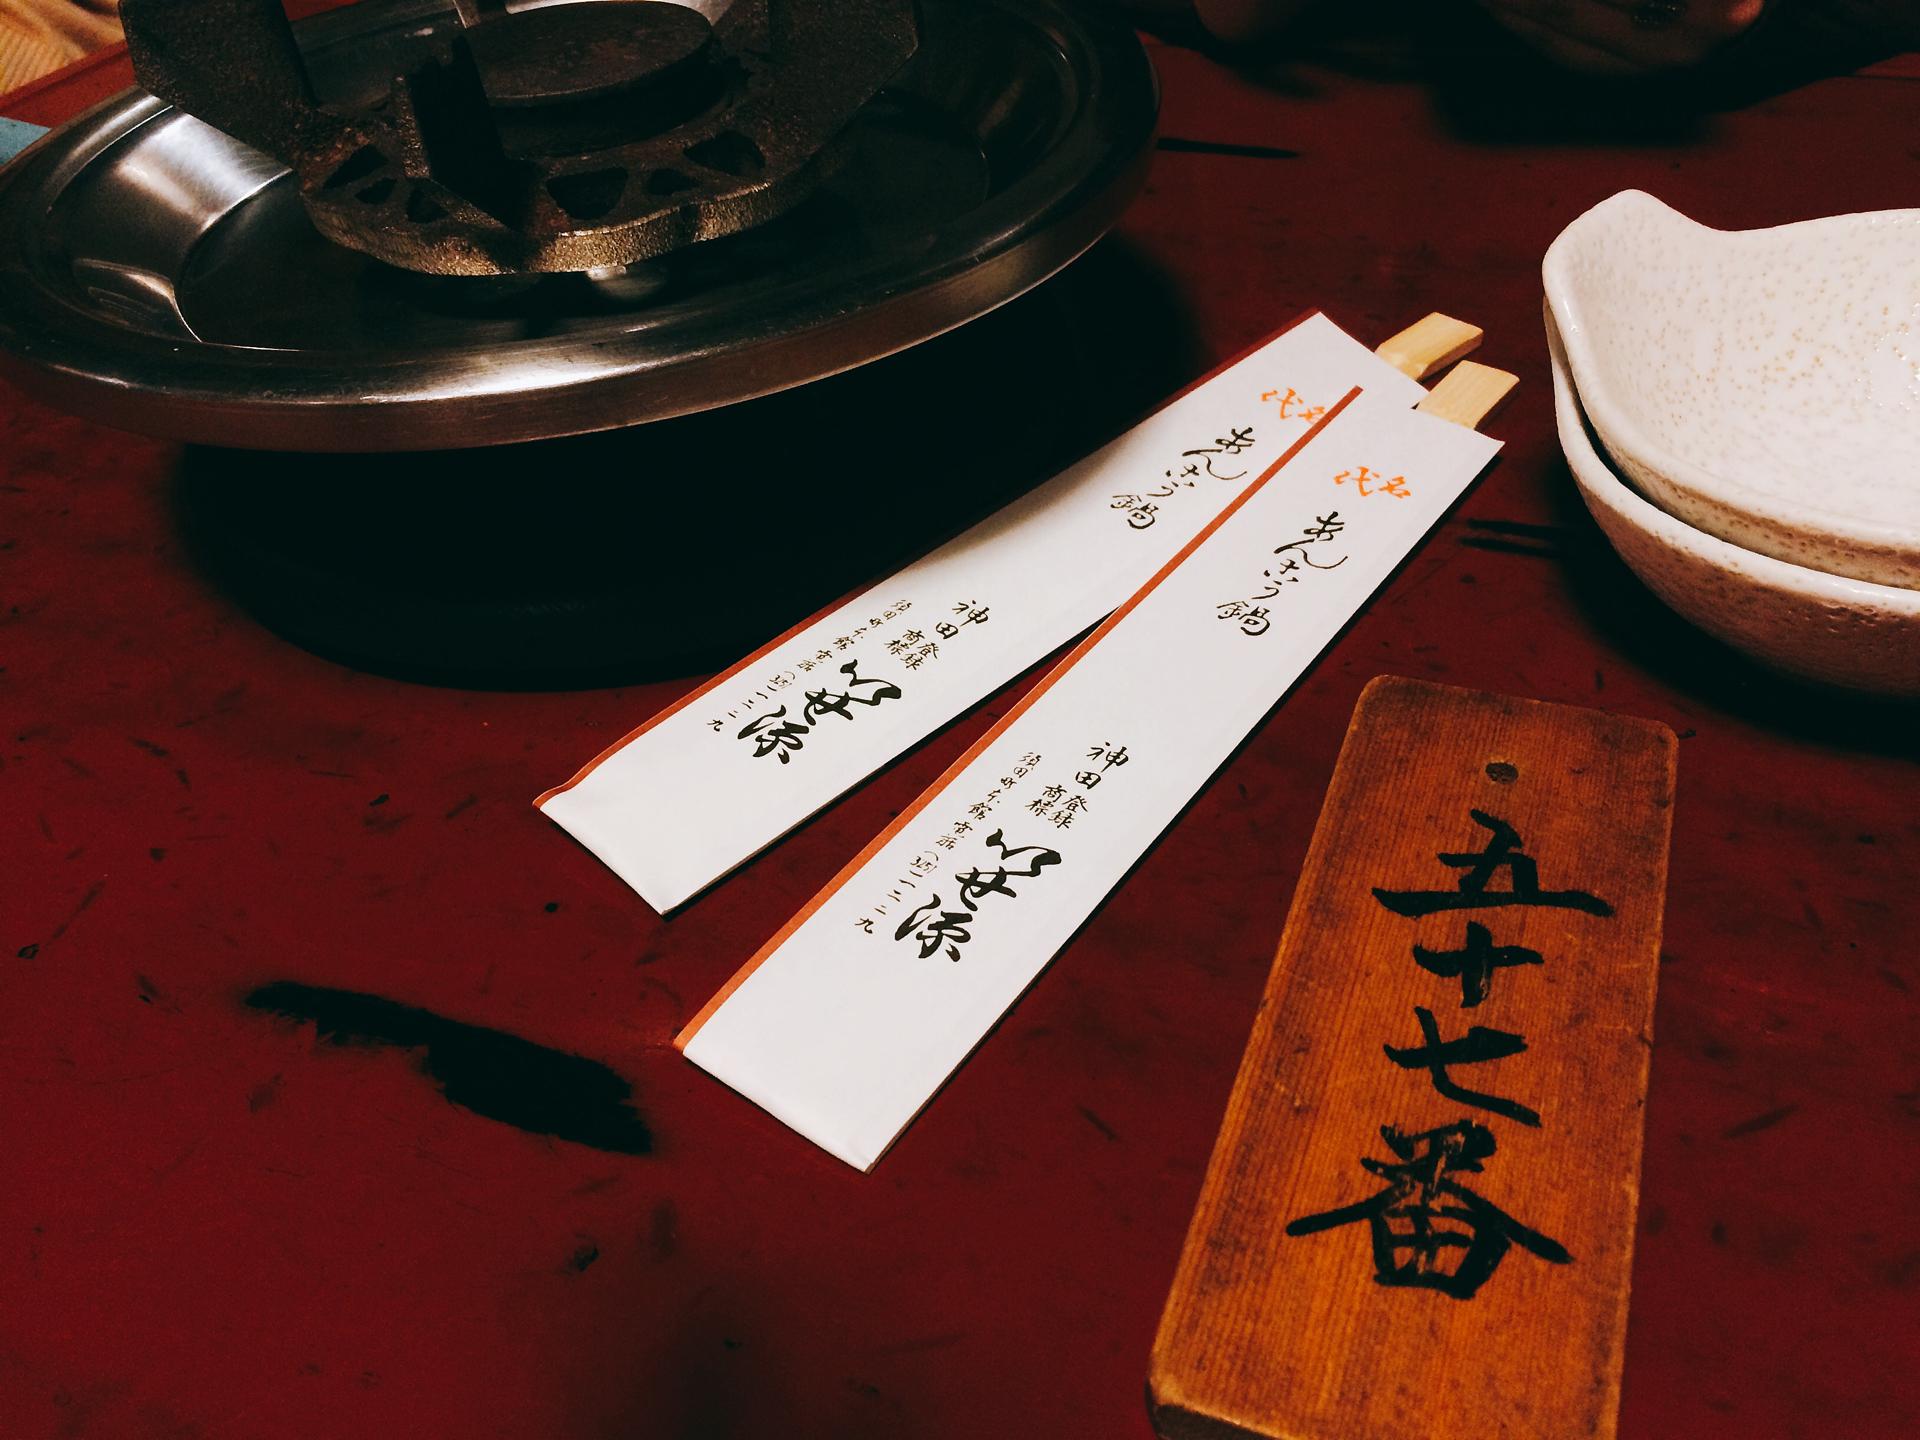 名代
あんこう鍋
神田
登録
商標
いせ源
須田町本館 電話(251)一二二九
名代
あんこう鍋
神田
登録
商標
いせ源
須田町本館 電話(251)一二二九
五十七番